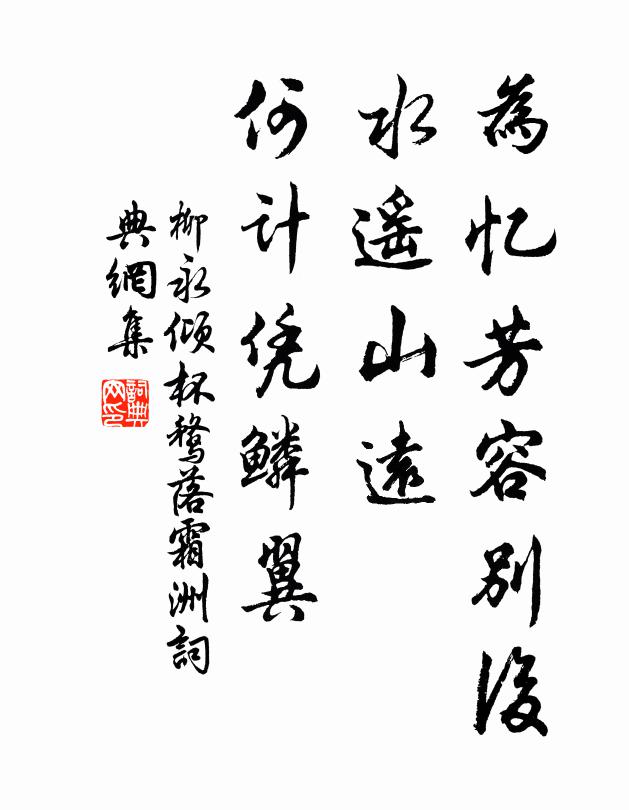 為忆芳容别後
水遥山遠
何计凭鳞翼
柳永倾杯鹜落霜洲詞
典網集
詞典网印